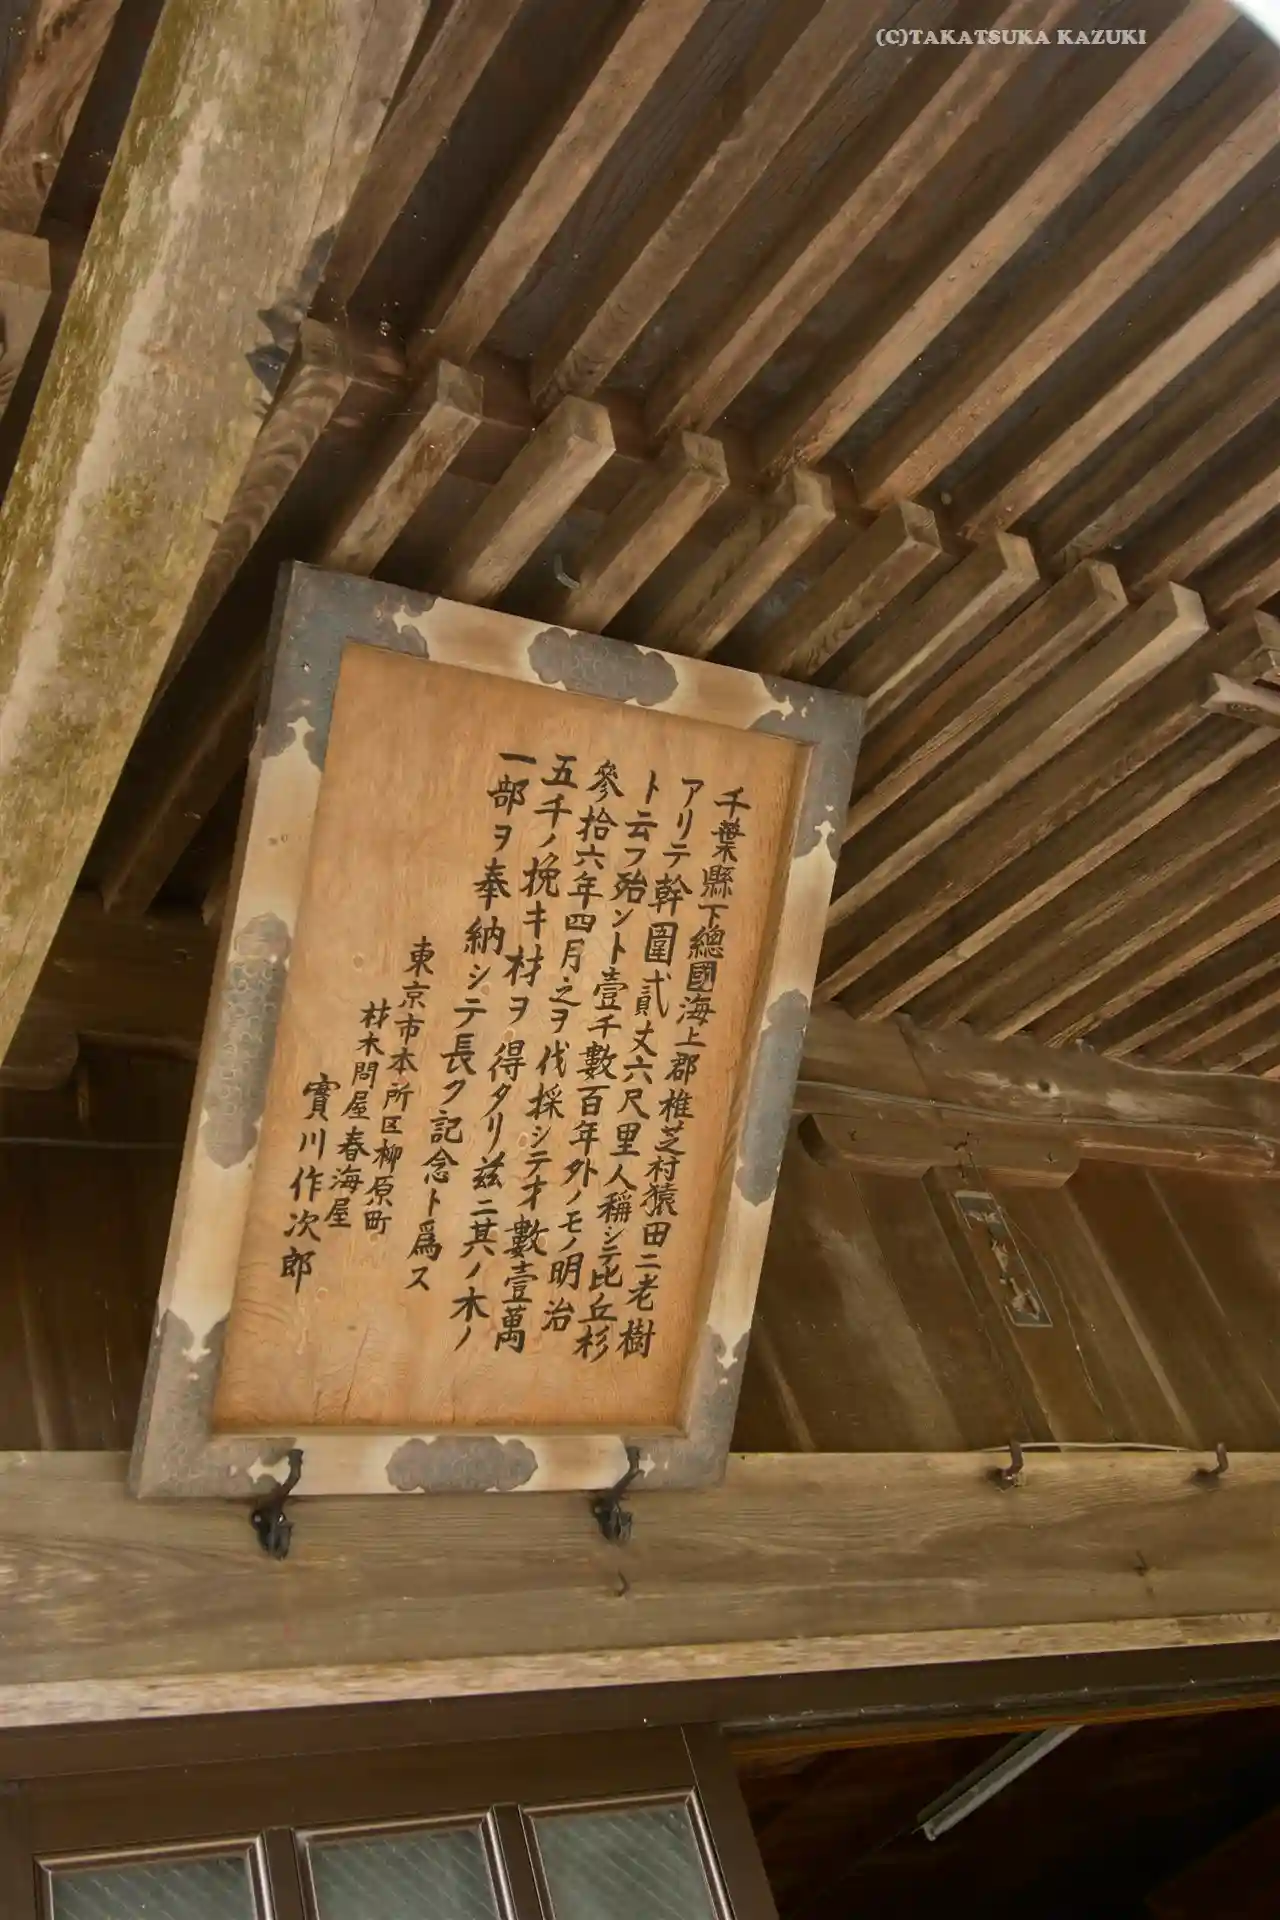 (C)TAKATSUKA KAZUKI
千葉縣下總國海上郡椎芝村猿田ニ老樹
アリテ幹圍貳丈六尺里人稱シテ比丘杉
ト云フ殆ント壹千數百年外ノモノ明治
參拾六年四月之ヲ伐採シテ才數壹萬
五千ノ挽キ材ヲ得タリ茲ニ其ノ木ノ
一部ヲ奉納シテ長ク記念ト爲ス
東京市本所区柳原町
材木問屋春海屋
實川作次郎